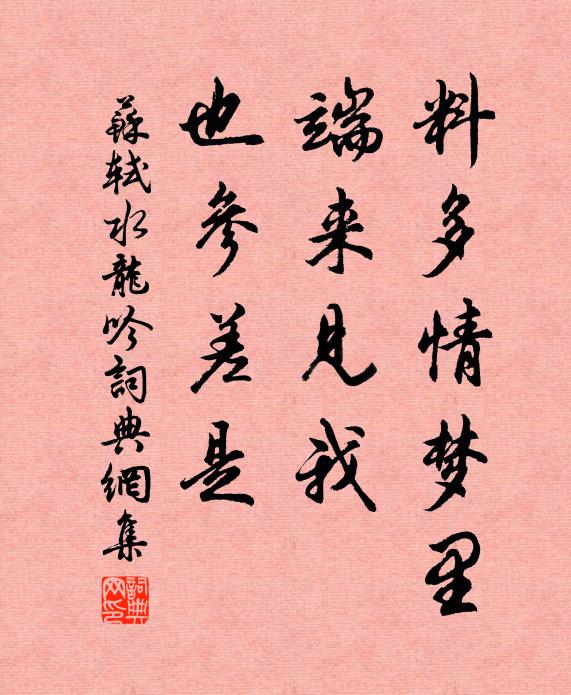 料多情梦里
端来见我
也参差是
蘇軾水龍吟詞典網集
詞典網印